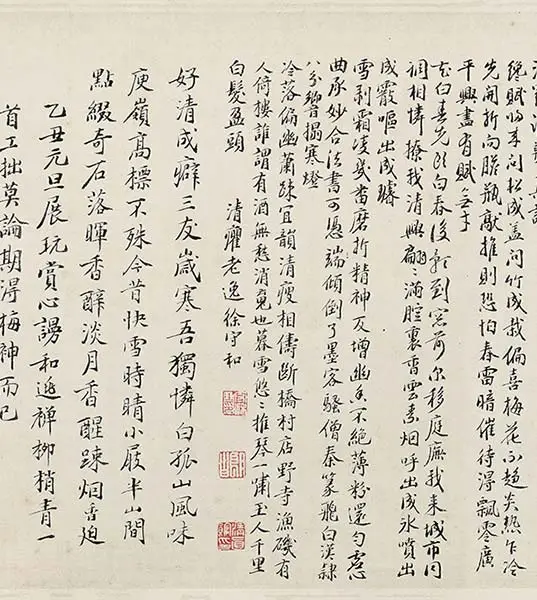 纔賦歸来問松成盖問竹成栽偏喜梅花不趨炎熱乍冷
先開折向膽瓶獻推則恐怕春雷暗催待得飄零廣
平興盡有賦無手
花白春光頭白春後到窓前尔移庭廡我来城市同
調相憐撩我清興翩〻滿腔裏香雲素烟呼出成氷噴出
成霰嘔出成璿
雪剥霜凌幾番磨折精神反增幽香不絶薄粉還勻虛心
曲承妙合法書可憑端傾倒了墨客騷僧秦篆飛白漢隸
八分響搨寒燈
冷落偏幽蕭疎宜韻清瘦相儔斷橋村店野寺漁磯有
人倚樓誰謂有酒無愁消也暮雪悠〻推琴一嘯玉人千里
白髮盈頭
清癯老逸徐守和
好清成癖三友歲寒吾獨憐白孤山風味
庾嶺高標不殊今昔快雪時晴小屐半山間
點綴奇石落暉香醉淡月香醒踈烟香迫
乙丑元旦展玩賞心謾和逃禪柳梢青一
首工拙莫論期得梅神而已